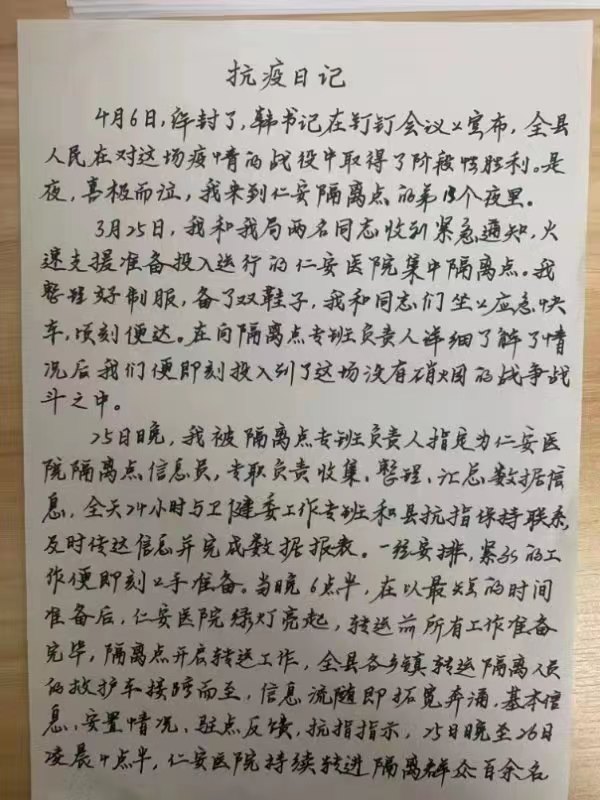 抗疫日记
4月6日，解封了，韩书记在钉钉会议上宣布，全县
人民在对这场疫情的战役中取得了阶段性胜利。是
夜，喜极而泣，我来到仁安隔离点的第13个夜里。
3月25日，我和我局两名同志收到紧急通知，火
速支援准备投入运行的仁安医院集中隔离点。我
整理好制服，备了双鞋子，我和同志们坐上应急快
车，顷刻便达。在向隔离点专班负责人详细了解了情
况后我们便即刻投入到了这场没有硝烟的战争战
斗之中。
25日晚，我被隔离点专班负责人指定为仁安医
院隔离点信息员，专职负责收集、整理、汇总数据信
息，全天24小时与卫健委工作专班和县抗指保持联系，
及时传达信息并完成数据报表。一经安排，紧张的工
作便即刻上手准备。当晚6点半，在以最短的时间
准备后，仁安医院绿灯亮起，转运前所有工作准备
完毕，隔离点开启转运工作，全县各乡镇转运隔离人员
的救护车接踵而至，信息流随即拓宽奔涌，基本信
息，安置情况，驻点反馈，抗指指示，25日晚至26日
凌晨4点半，仁安医院持续转进隔离群众百余名